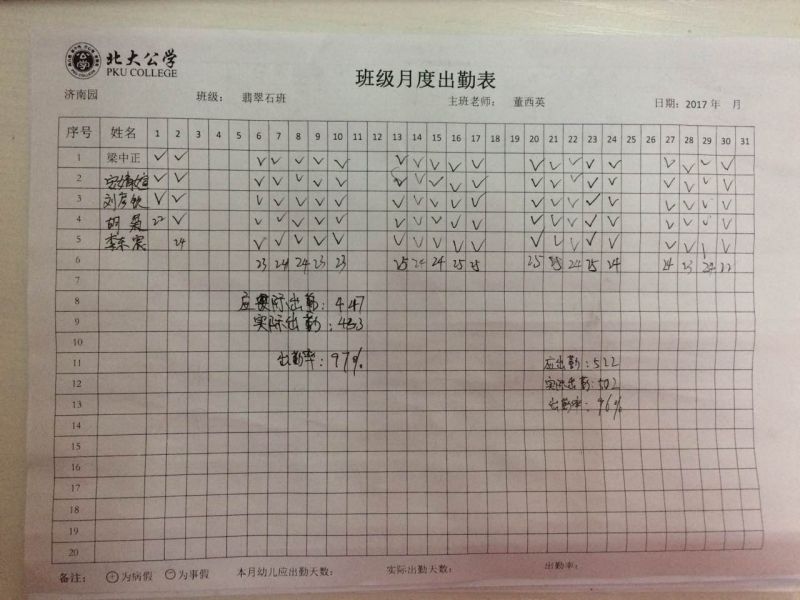 北大公学
PKU COLLEGE
班级月度出勤表
济南园 班级: 翡翠石班 主班老师: 董西英 日期: 2017 年 月
序号 姓名 1 2 3 4 5 6 7 8 9 10 11 12 13 14 15 16 17 18 19 20 21 22 23 24 25 26 27 28 29 30 31
1 梁中正 ✓ ✓ ✓ ✓ ✓ ✓ ✓ ✓ ✓ ✓ ✓ ✓ ✓ ✓ ✓ ✓ ✓ ✓ ✓ ✓ ✓
2 ✓ ✓ ✓ ✓ ✓ ✓ ✓ ✓ ✓ ✓ ✓ ✓ ✓ ✓ ✓ ✓ ✓ ✓ ✓ ✓ ✓
3 刘彦钦 ✓ ✓ ✓ ✓ ✓ ✓ ✓ ✓ ✓ ✓ ✓ ✓ ✓ ✓ ✓ ✓ ✓ ✓ ✓ ✓ ✓
4 胡 ✓ ✓ ✓ ✓ ✓ ✓ ✓ ✓ ✓ ✓ ✓ ✓ ✓ ✓ ✓ ✓ ✓ ✓ ✓ ✓
5 李东宸 24 ✓ ✓ ✓ ✓ ✓ ✓ ✓ ✓ ✓ ✓ ✓ ✓ ✓ ✓ ✓ ✓ ✓ ✓ ✓
6 23 24 24 23 23 25 24 24 25 25 25 25 24 25 24 24 23 24 22
7
8 应出勤: 447
9 实际出勤: 433
10
出勤率: 97%
11 应出勤: 522
12 实际出勤: 502
13 出勤率: 96%
14
15
16
17
18
19
20
备注: + 为病假 − 为事假 本月幼儿应出勤天数: 实际出勤天数: 出勤率: